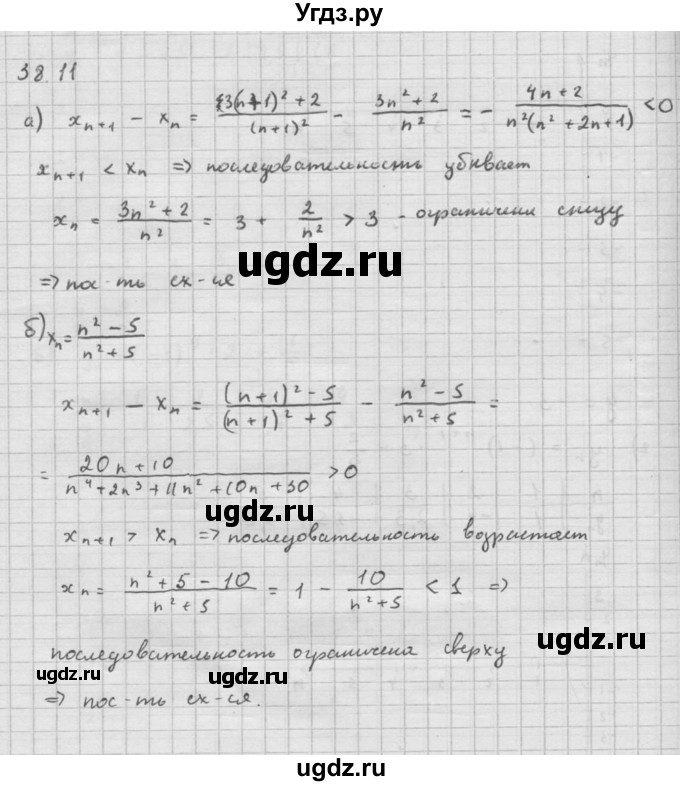 Угдз.ру
38.11
а) x_{n+1} - x_n = (3(n+1)² + 2)/((n+1)²) - (3n² + 2)/(n²) = - (4n + 2)/(n²(n² + 2n + 1)) < 0
x_{n+1} < x_n => последовательность убывает
x_n = (3n² + 2)/(n²) = 3 + 2/(n²) > 3 - ограничена снизу
ugdz.ru
=> пос-ть сх-ся
б) x_n = (n² - 5)/(n² + 5)
x_{n+1} - x_n = ((n+1)² - 5)/((n+1)² + 5) - (n² - 5)/(n² + 5) =
= (20n + 10)/(n⁴ + 2n³ + 11n² + 10n + 30) > 0
ugdz.ru
x_{n+1} > x_n => последовательность возрастает
x_n = (n² + 5 - 10)/(n² + 5) = 1 - 10/(n² + 5) < 1 =>
ugdz.ru
последовательность ограничена сверху
ugdz.ru
ugdz.ru
=> пос-ть сх-ся.
ugdz.ru